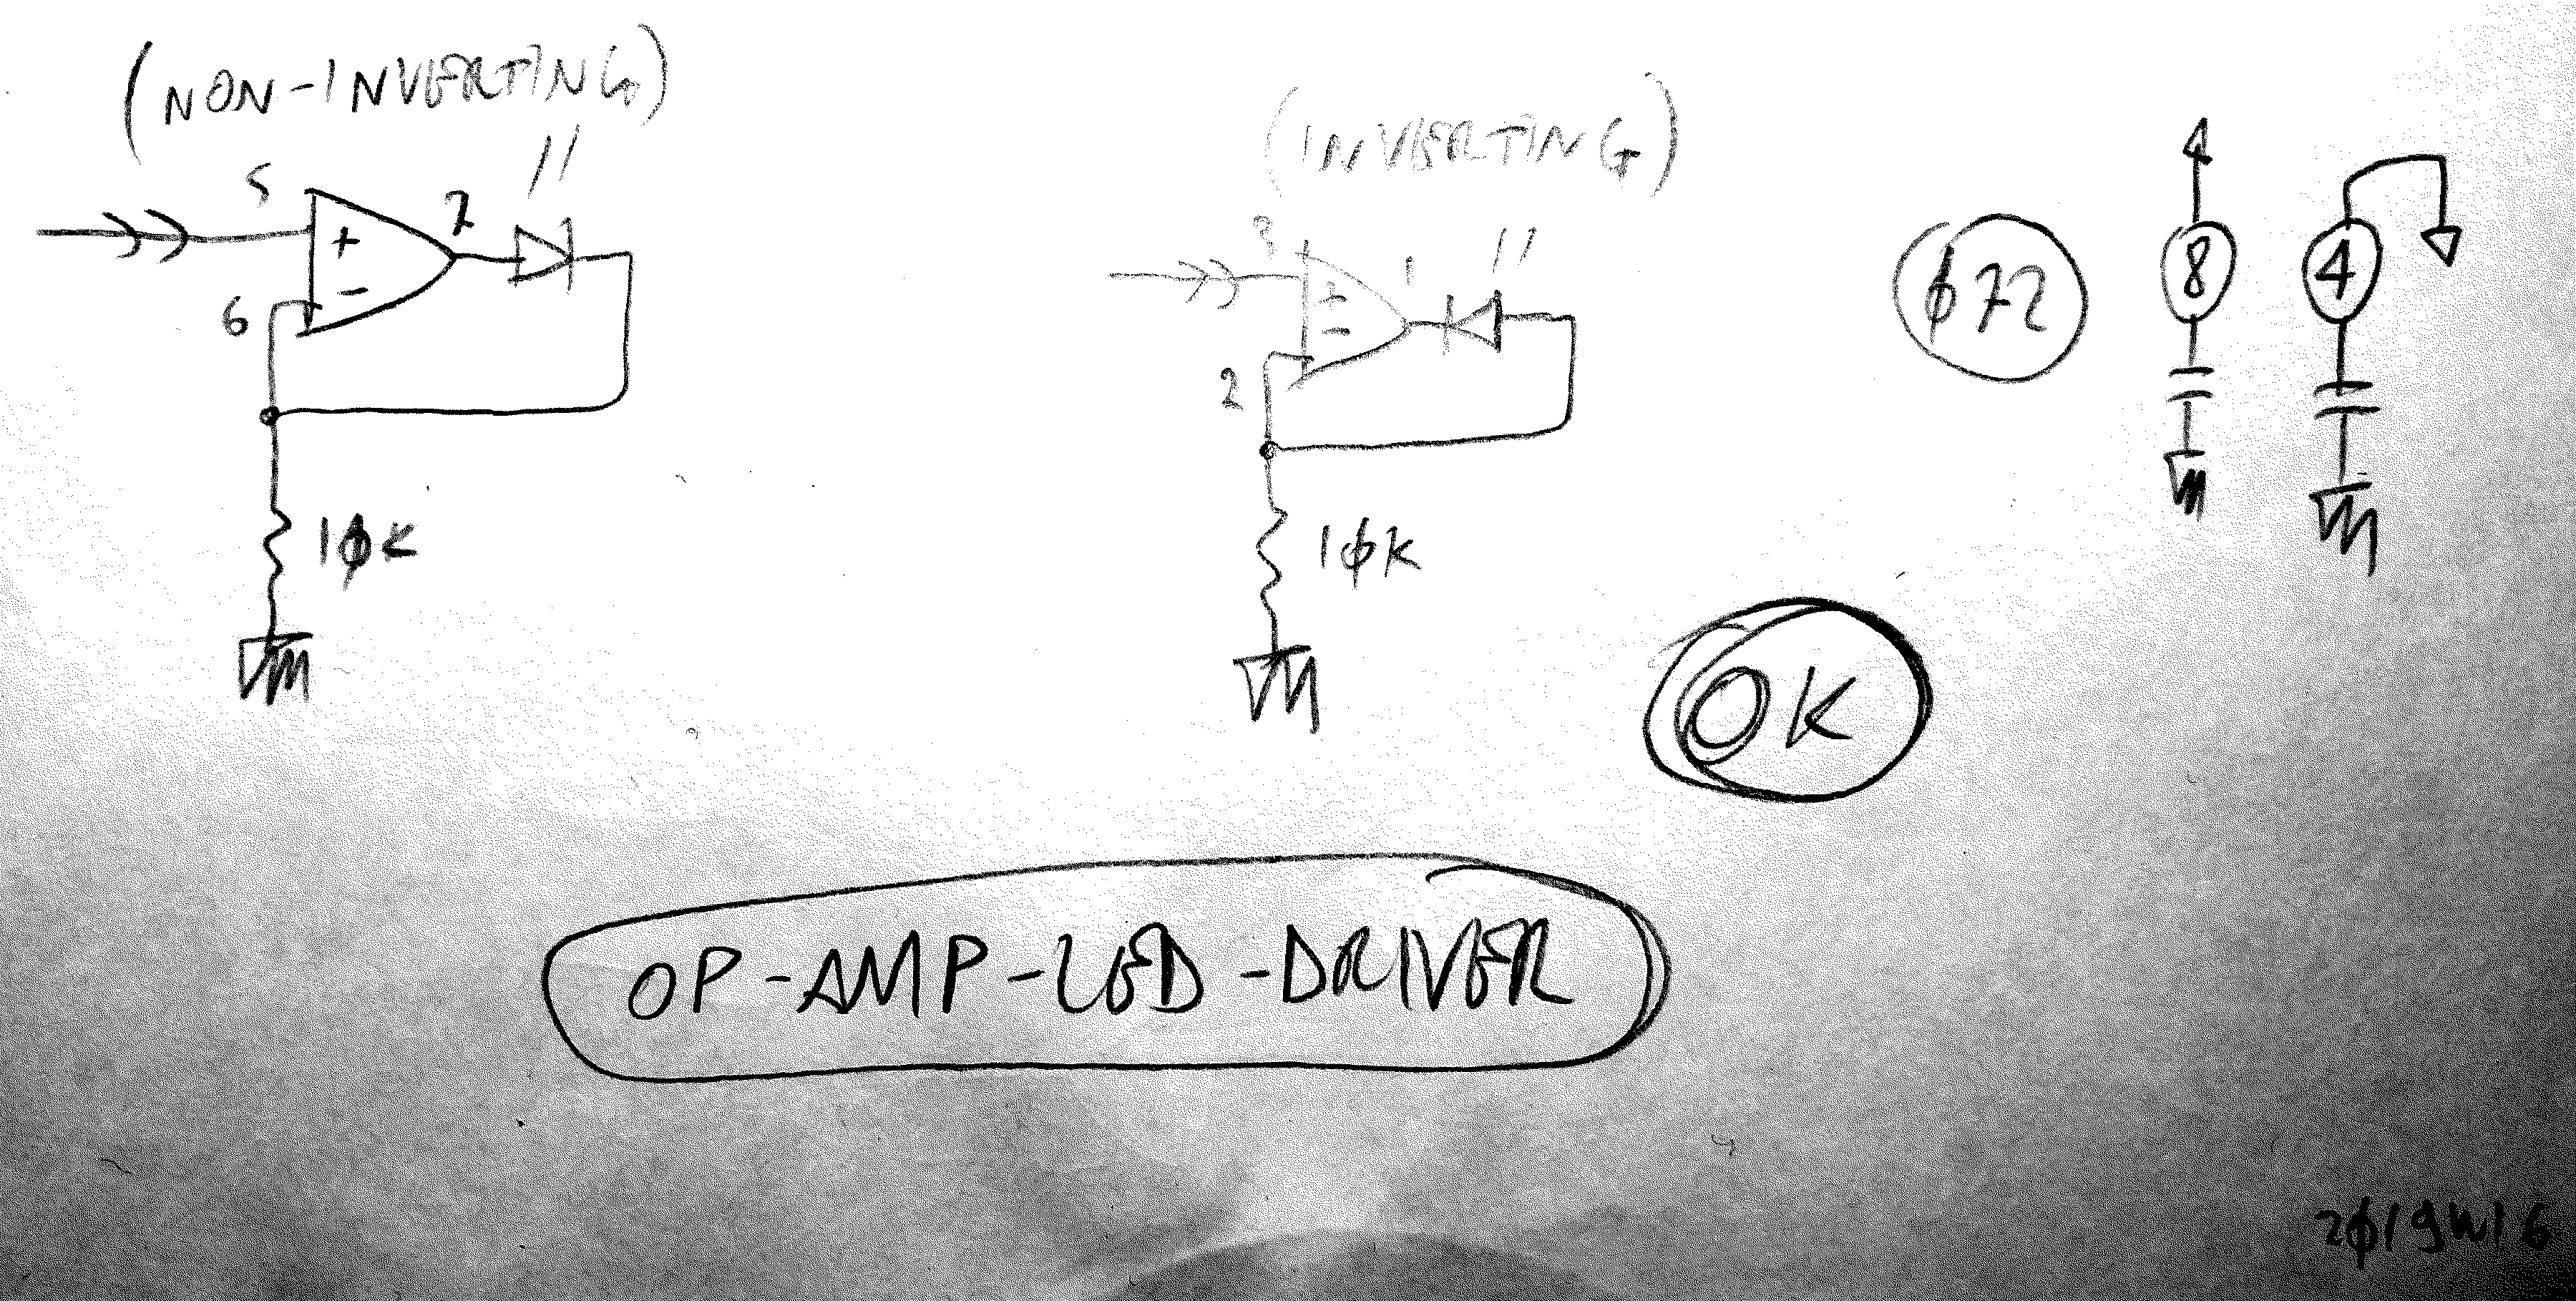 (NON-INVERTING)
5
+
7
6
-
10K
(INVERTING)
3
+
1
-
2
10K
072
8
4
OK
OP-AMP-LED-DRIVER
2019W16